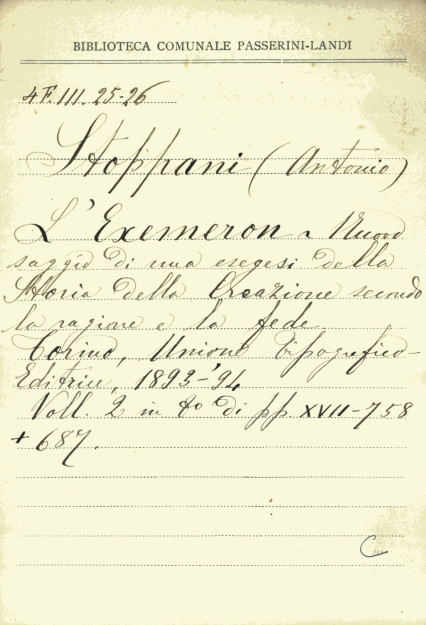 BIBLIOTECA COMUNALE PASSERINI-LANDI
4F.III.25-26
Stoppani (Antonio)
L'Exemeron ~ Nuovo
saggio di una esegesi della
Storia della Creazione secondo
la ragione e la fede
Torino, Unione Tipografico-
Editrice, 1893-'94
Voll. 2 in 8º di pp. XVII-758
+ 687.
C